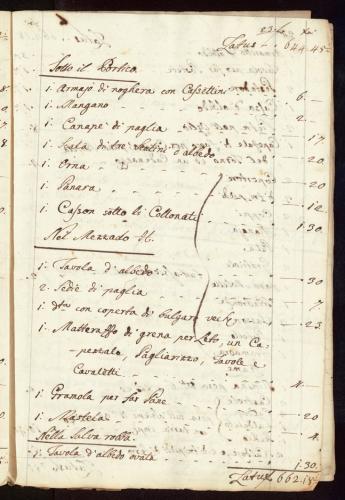 Latus 644 45
Sotto il Portico
1. Armajo di noghera con Cassettini 6 —
1. Mangano 2 —
1. Canapè di paglia 17
1. Scala di d'albedo 20
1. Orna 20
1. Panara 12
1. Casson sotto li Collonati 1.30
Nel Mezzado
1. Tavola d'albedo 30
2. Sedie di paglia 7
1. dto con coperta di bulgaro vech 23
1. Matterasso di grena per Leto, un Ca-
pezzale, Pagliarizzo, Tavole e
Cavaletti 4 —
1. Gramola per far Pane 20
1. Mastela 4
Nella Salva robba
1. Tavola d'albedo ovata 1.30
Latus 662.18